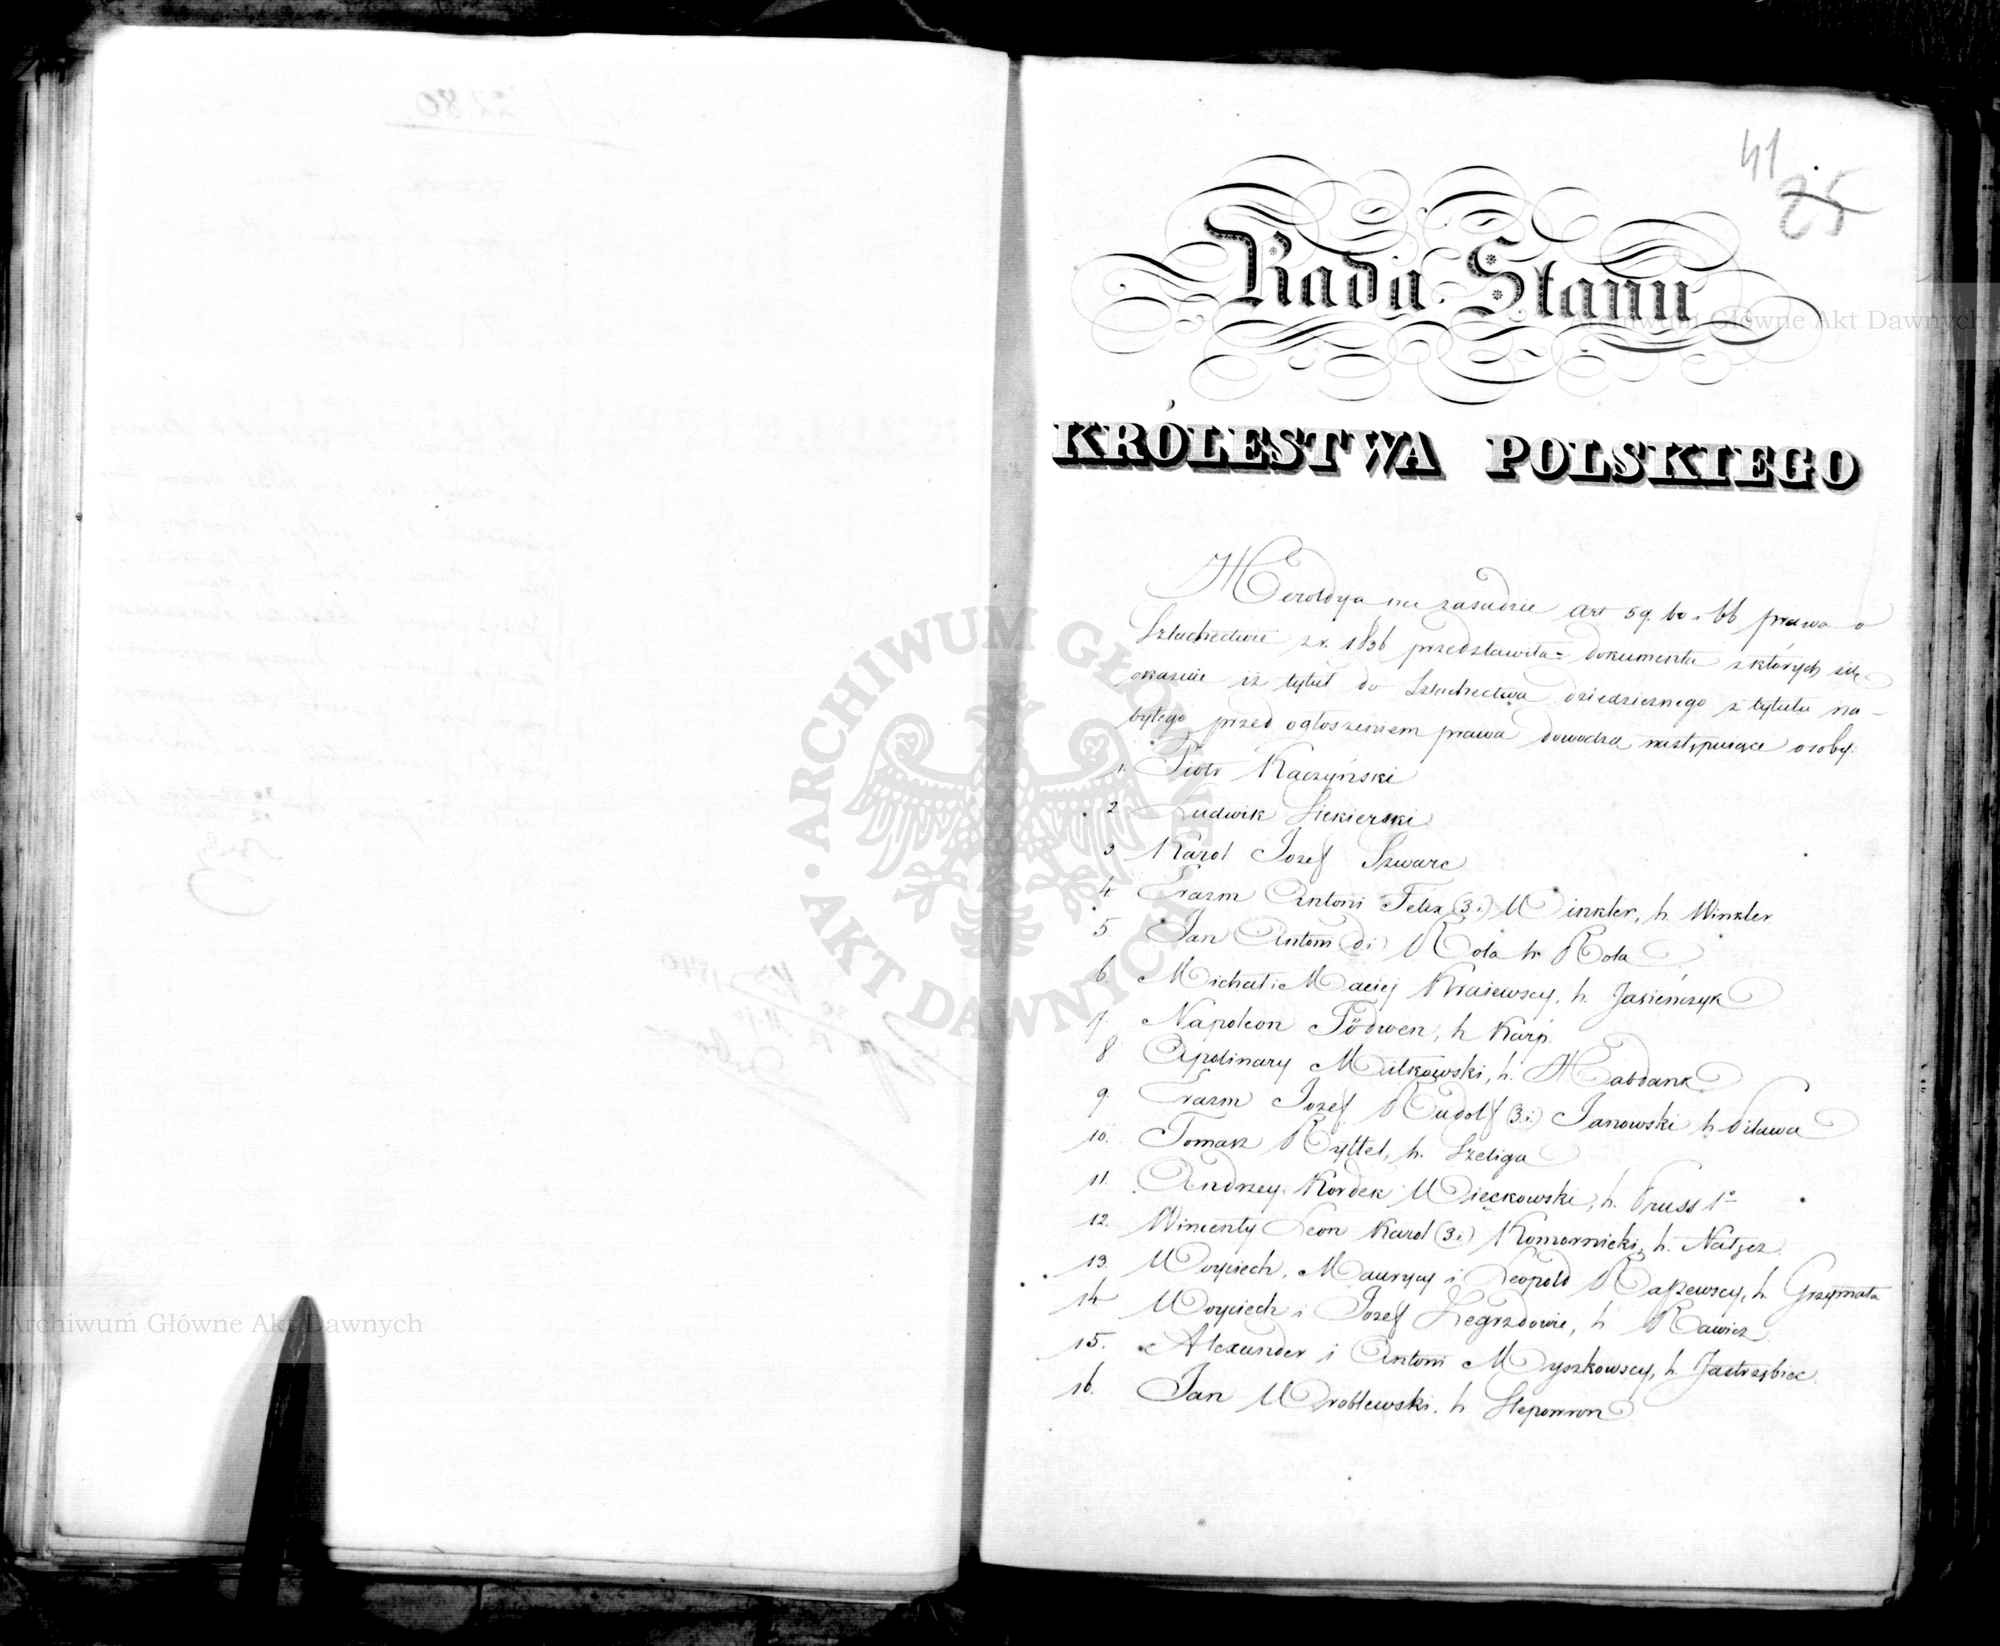 41
25
Rada Stanu
KRÓLESTWA POLSKIEGO
Heroldya na zasadzie art 59. 60 i 66 prawa o
Szlachectwie z r. 1836 przedstawiła dokumenta z których się
okazuie iż tytuł do Szlachectwa dziedzicznego z tytułu na-
bytego przed ogłoszeniem prawa dowodzą następuiące osoby:
1. Piotr Kaczyński
2 Ludwik Siekierski
3 Karol Jozef Szwarc
4. Erazm Antoni Felix (3. i.) Winkler, h. Winkler
5. Jan Antoni (2. i.) Rola h. Rola
6. Michał i Maciej Kraiewscy, h. Jasieńczyk
7. Napoleon Födwen, h Karp.
8. Apolinary Miłkowski, h. Habdank
9. Erazm Jozef Rudolf (3. i.) Janowski h. Pilawa
10. Tomasz Ryttel, h. Szeliga
11. Andrzey Kordek Więckowski, h. Pruss 1º
12. Wincenty Leon Karol (3. i.) Komornicki, h. Nałęcz.
13. Woyciech, Maurycy i Leopold Raszewscy, h. Grzymała
14 Woyciech i Jozef Zegrzdowie, h Rawicz
15. Alexander i Antoni Myszkowscy, h. Jastrzębiec.
16. Jan Wroblewski. h Slepowron
ARCHIWUM GŁÓWNE AKT DAWNYCH
Archiwum Główne Akt Dawnych
Archiwum Główne Akt Dawnych